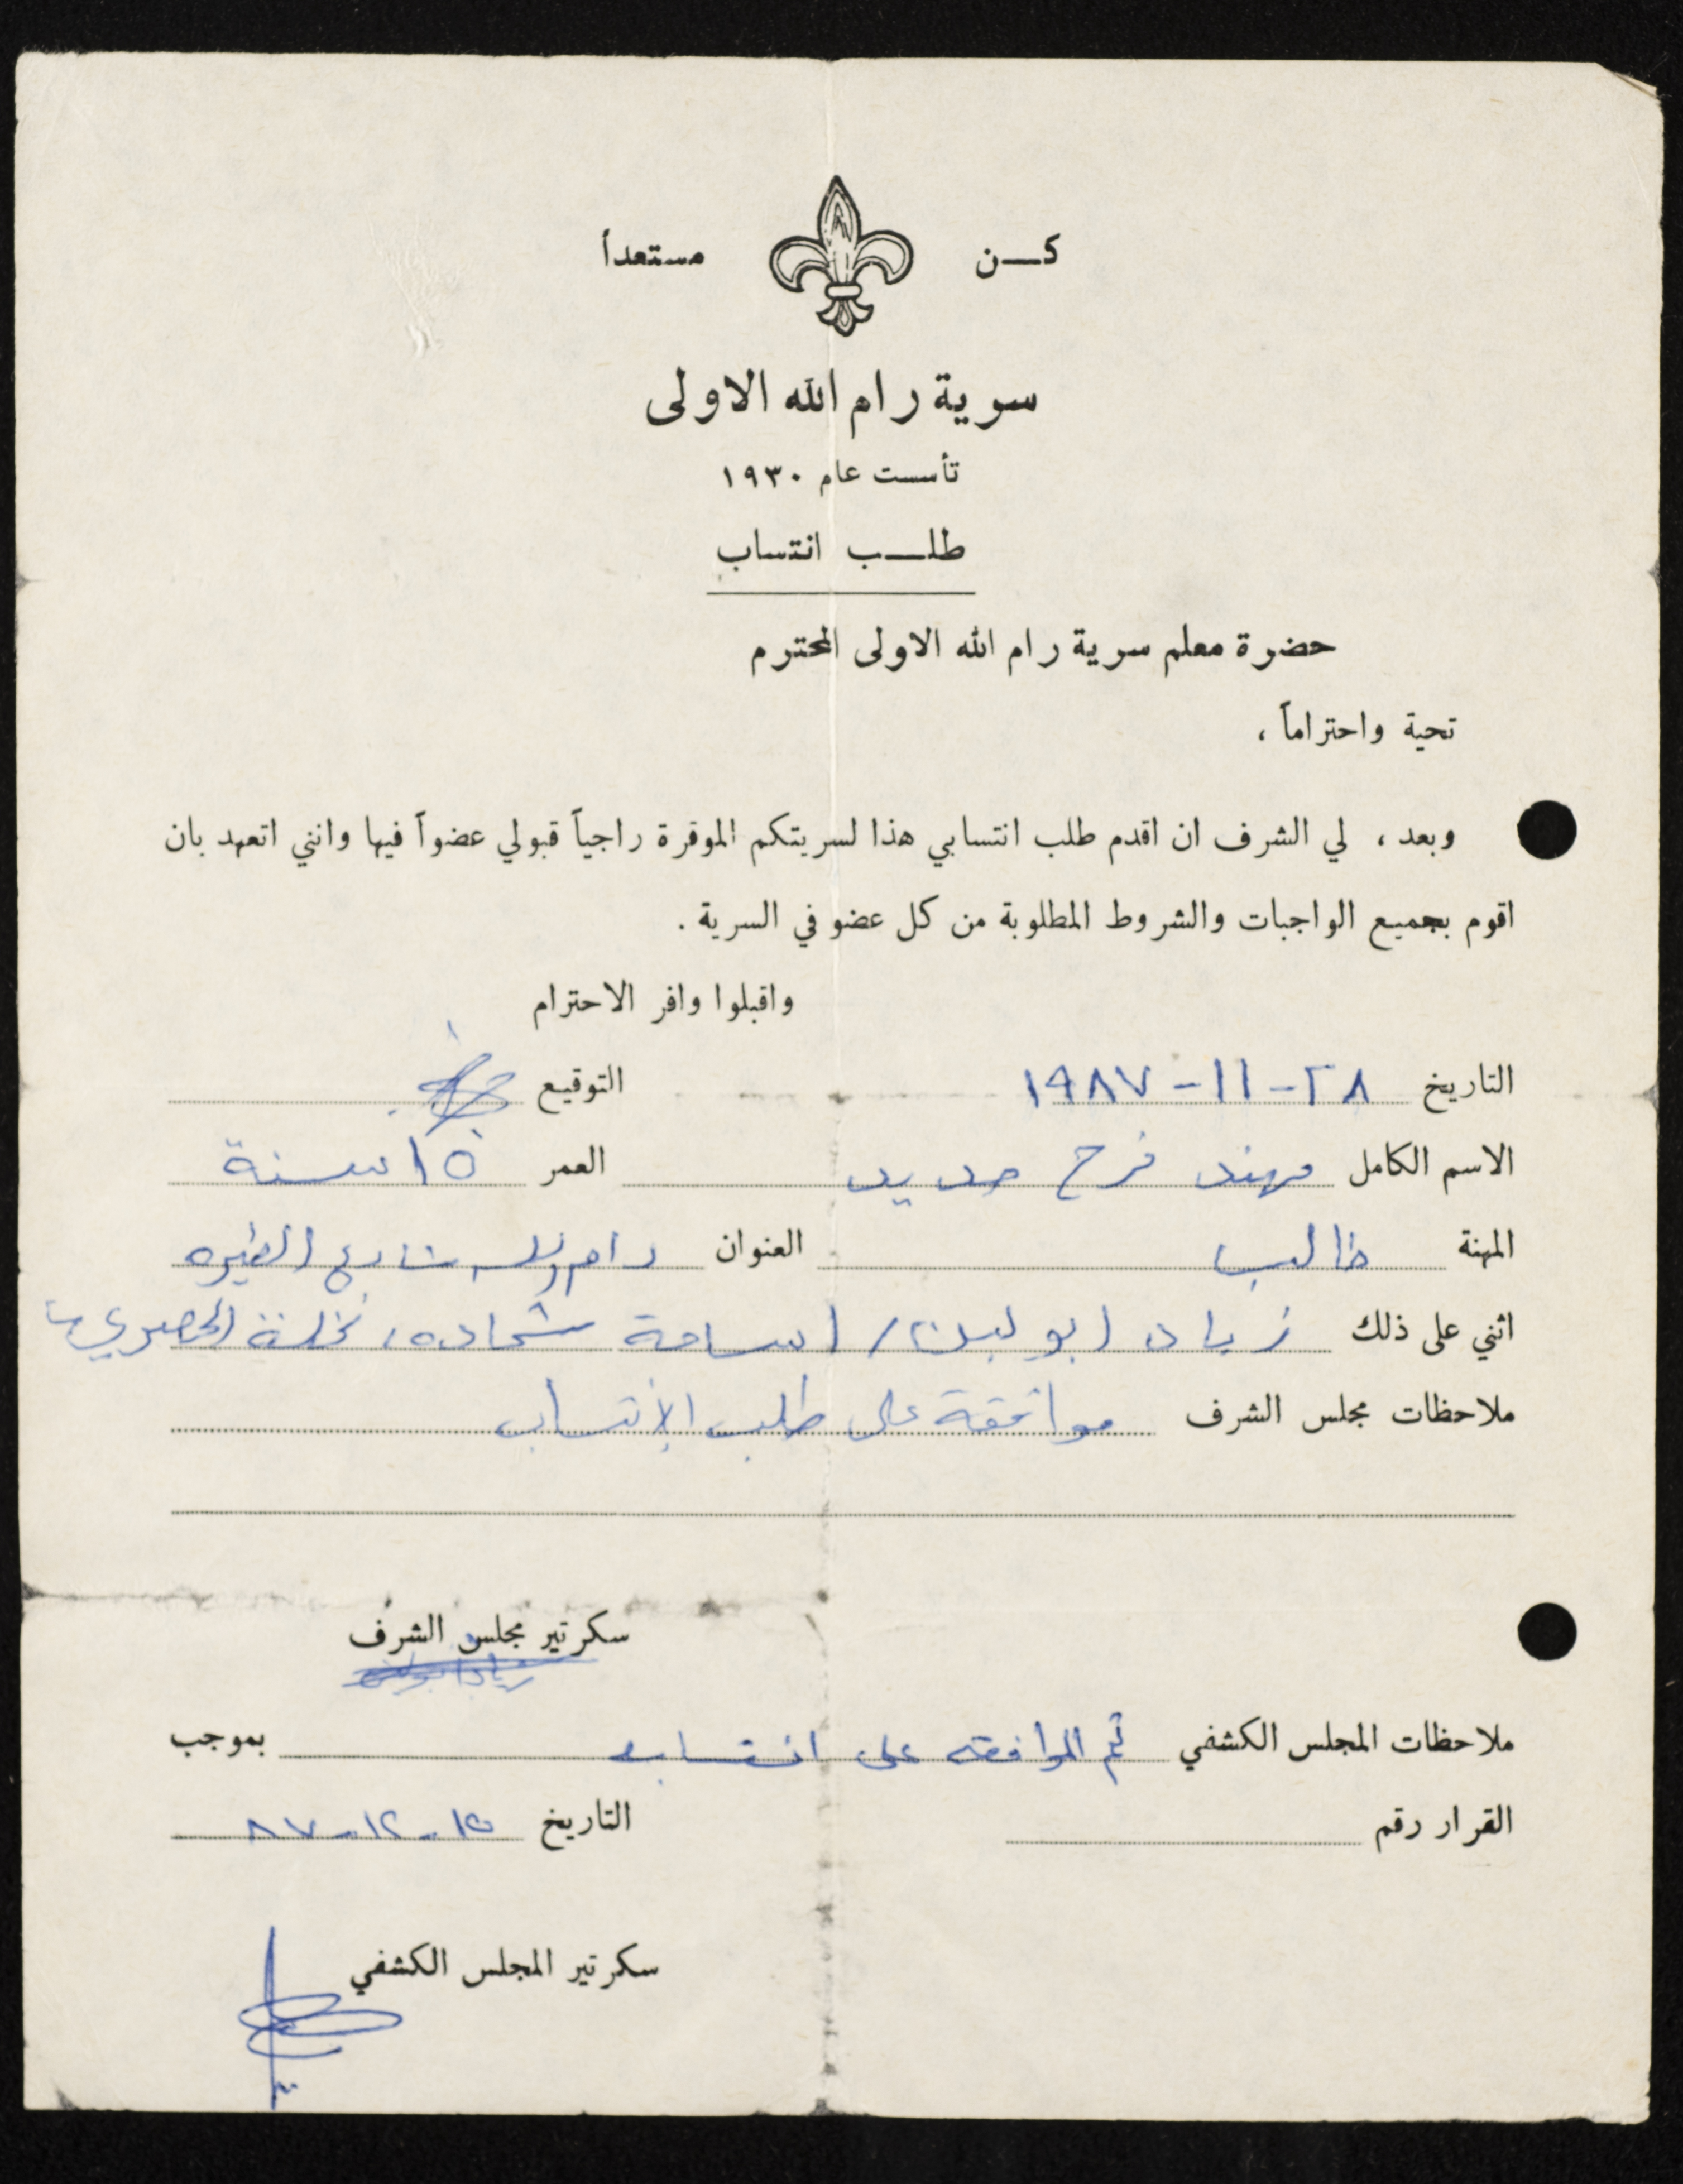 كـن مستعداً
سرية رام الله الاولى
تأسست عام ١٩٣٠
طلـب انتساب
حضرة معلم سرية رام الله الاولى المحترم
تحية واحتراماً ،
وبعد ، لي الشرف ان اقدم طلب انتسابي هذا لسريتكم الموقرة راجياً قبولي عضواً فيها وانني اتعهد بان
اقوم بجميع الواجبات والشروط المطلوبة من كل عضو في السرية .
واقبلوا وافر الاحترام
التاريخ ٢٨-١١-١٩٨٧ التوقيع
الاسم الكامل مهند فرح حديد العمر ١٥ سنة
المهنة طالب العنوان رام الله شارع الطيره
اثني على ذلك زياد ابو لبن / اسامة شحاده،
ملاحظات مجلس الشرف موافقة على طلب الإنتساب
سكرتير مجلس الشرف
ملاحظات المجلس الكشفي تم الموافقه على انتسابه بموجب
القرار رقم التاريخ ١٥-١٢-٨٧
سكرتير المجلس الكشفي